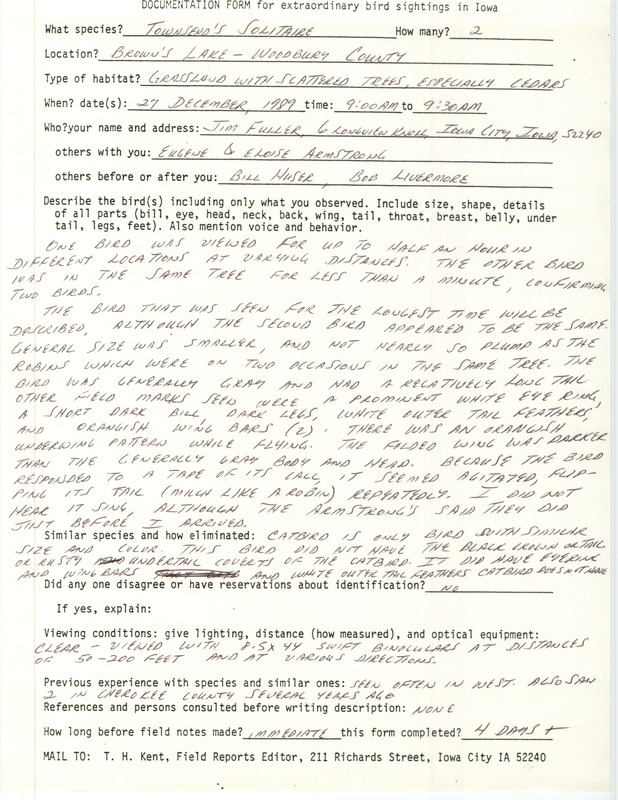 DOCUMENTATION FORM for extraordinary bird sightings in Iowa
What species? TOWNSEND'S SOLITAIRE How many? 2
Location? BROWN'S LAKE - WOODBURY COUNTY
Type of habitat? GRASSLAND WITH SCATTERED TREES, ESPECIALLY CEDARS
When? date(s): 27 DECEMBER, 1989 time: 9:00AM to 9:30AM
Who?your name and address: JIM FULLER, 6 LONGVIEW KNOLL IOWA CITY, IOWA, 52240
others with you: EUGENE & ELOISE ARMSTRONG
others before or after you: BILL HUSER, BOB LIVERMORE
Describe the bird(s) including only what you observed. Include size, shape, details
of all parts (bill, eye, head, neck, back, wing, tail, throat, breast, belly, under
tail, legs, feet). Also mention voice and behavior.
ONE BIRD WAS VIEWED FOR UP TO HALF AN HOUR IN
DIFFERENT LOCATIONS AT VARYING DISTANCES. THE OTHER BIRD
WAS IN THE SAME TREE FOR LESS THAN A MINUTE, CONFIRMING
TWO BIRDS.
THE BIRD THAT WAS SEEN FOR THE LONGEST TIME WILL BE
DESCRIBED, ALTHOUGH THE SECOND BIRD APPEARED TO BE THE SAME.
GENERAL SIZE WAS SMALLER, AND NOT NEARLY SO PLUMP AS THE
ROBINS WHICH WERE ON TWO OCCASIONS IN THE SAME TREE. THE
BIRD WAS GENERALLY GRAY AND HAD A RELATIVELY LONG TAIL
OTHER FIELD MARKS SEEN WERE A PROMINENT WHITE EYE RING,
A SHORT DARK BILL, DARK LEGS, WHITE OUTER TAIL FEATHERS,
AND ORANGISH WING BARS (2). THERE WAS AN ORANGISH
UNDERWING PATTERN WHILE FLYING. THE FOLDED WING WAS DARKER
THAN THE GENERALLY GRAY BODY AND HEAD. BECAUSE THE BIRD
RESPONDED TO A TAPE OF ITS CALL, IT SEEMED AGITATED, FLIP-
PING ITS TAIL (MUCH LIKE A ROBIN) REPEATEDLY. I DID NOT
HEAR IT SING, ALTHOUGH THE ARMSTRONG'S SAID THEY DID
JUST BEFORE I ARRIVED.
Similar species and how eliminated: CATBIRD IS ONLY BIRD WITH SIMILAR
SIZE AND COLOR. THIS BIRD DID NOT HAVE THE BLACK CROWN OR TAIL
OR RUSTY UNDERTAIL COVERTS OF THE CATBIRD. IT DID HAVE EYERING
AND WING BARS AND WHITE OUTER TAIL FEATHERS CATBIRD DOES NOT HAVE
Did any one disagree or have reservations about identification? NO
If yes, explain:
Viewing conditions: give lighting, distance (how measured), and optical equipment:
CLEAR - VIEWED WITH 8.5X44 SWIFT BINOCULARS AT DISTANCES
OF 50-200 FEET AND AT VARIOUS DIRECTIONS.
Previous experience with species and similar ones: SEEN OFTEN IN WEST. ALSO SAW
2 IN CHEROKEE COUNTY SEVERAL YEARS AGO
References and persons consulted before writing description: NONE
How long before field notes made? IMMEDIATE this form completed? 4 DAYS +
MAIL TO: T. H. Kent, Field Reports Editor, 211 Richards Street, Iowa City IA 52240